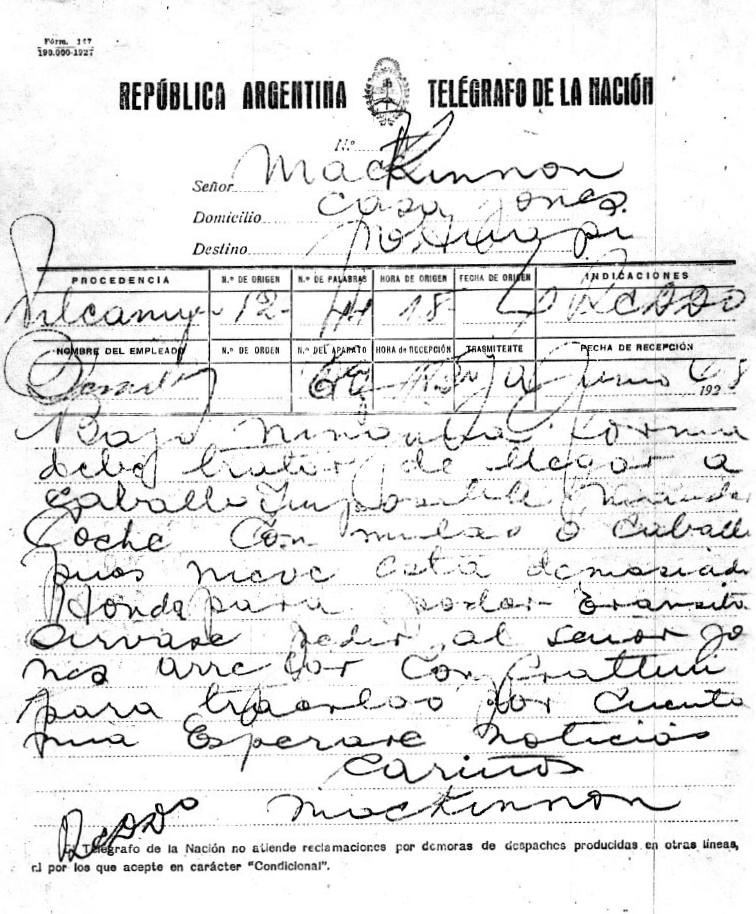 Fórm. 147
190.000-1927
REPÚBLICA ARGENTINA TELÉGRAFO DE LA NACIÓN
N.º
Señor MacKinnon
Domicilio Casa Jones.
Destino
PROCEDENCIA N.º DE ORIGEN N.º DE PALABRAS HORA DE ORIGEN FECHA DE ORIGEN INDICACIONES
12 44 18
NOMBRE DEL EMPLEADO N.º DE ORDEN N.º DEL APARATO HORA de RECEPCIÓN TRASMITENTE FECHA DE RECEPCIÓN
Junio 1928
Bajo ninguna forma
debe tratar de llegar a
Caballo Imposible
Coche Con mulas o Caball
pues nieve está demasiado
Honda para poder transitar
Sirvase pedir al señor Jo
nes arreglar Con
para traerloo por Cuenta
mia Esperare noticias
Cariños
MacKinnon
El Telégrafo de la Nación no atiende reclamaciones por demoras de despachos producidas en otras líneas,
el por los que acepte en carácter "Condicional".